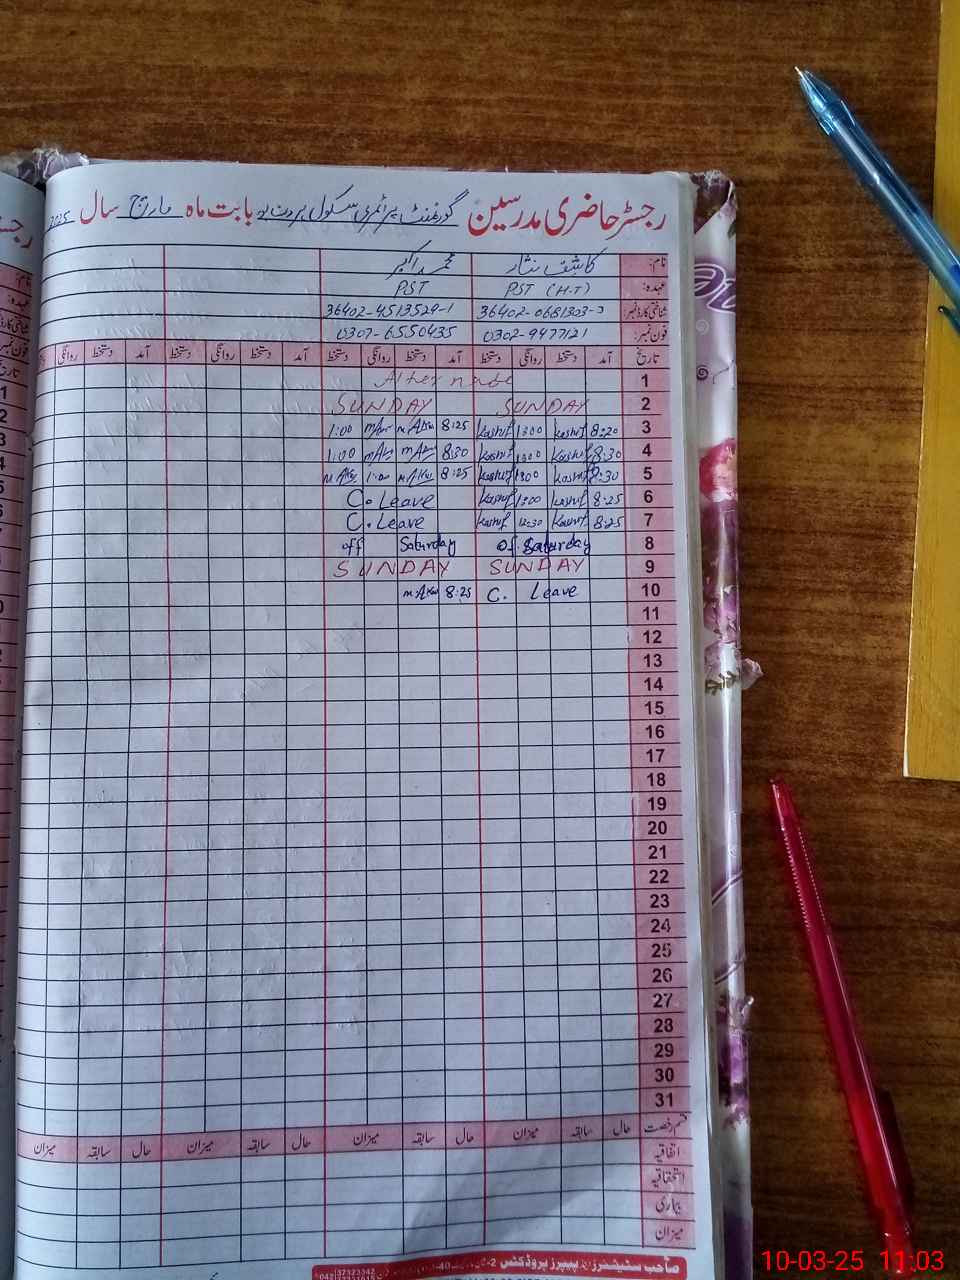 رجسٹر حاضری مدرسین گورنمنٹ پرائمری سکول بابت ماہ مارچ سال 2025
نام: کاشف نثار محمد اکبر
عہدہ: PST (H.T) PST
شناختی کارڈ نمبر: 36402-0681303-3 36402-4513529-1
فون نمبر: 0302-9477121 0307-6550435
تاریخ آمد دستخط روانگی دستخط آمد دستخط روانگی دستخط آمد دستخط روانگی دستخط آمد دستخط روانگی
1 Alternate
2 SUNDAY SUNDAY
3 8:20 Kashif 1300 Kashif 8:25 m.Akr m.Akr 1:00
4 8:30 Kashif 1300 Kashif 8:30 m.Akr m.Akr 1:00
5 8:30 Kashif 1300 Kashif 8:25 m.Akr 1:00 m.Akr
6 8:25 Kashif 1300 Kashif C. Leave
7 8:25 Kashif 12:30 Kashif C. Leave
8 of. Saturday off Saturday
9 SUNDAY SUNDAY
10 C. Leave 8:25 m.Akr
11
12
13
14
15
16
17
18
19
20
21
22
23
24
25
26
27
28
29
30
31
قسم رخصت حال سابقہ میزان حال سابقہ میزان حال سابقہ میزان حال سابقہ میزان
اتفاقیہ
استحقاقیہ
بیماری
میزان
صاحب سٹیشنرز اینڈ پیپرز پروڈکٹس
042 37323342
10-03-25 11:03